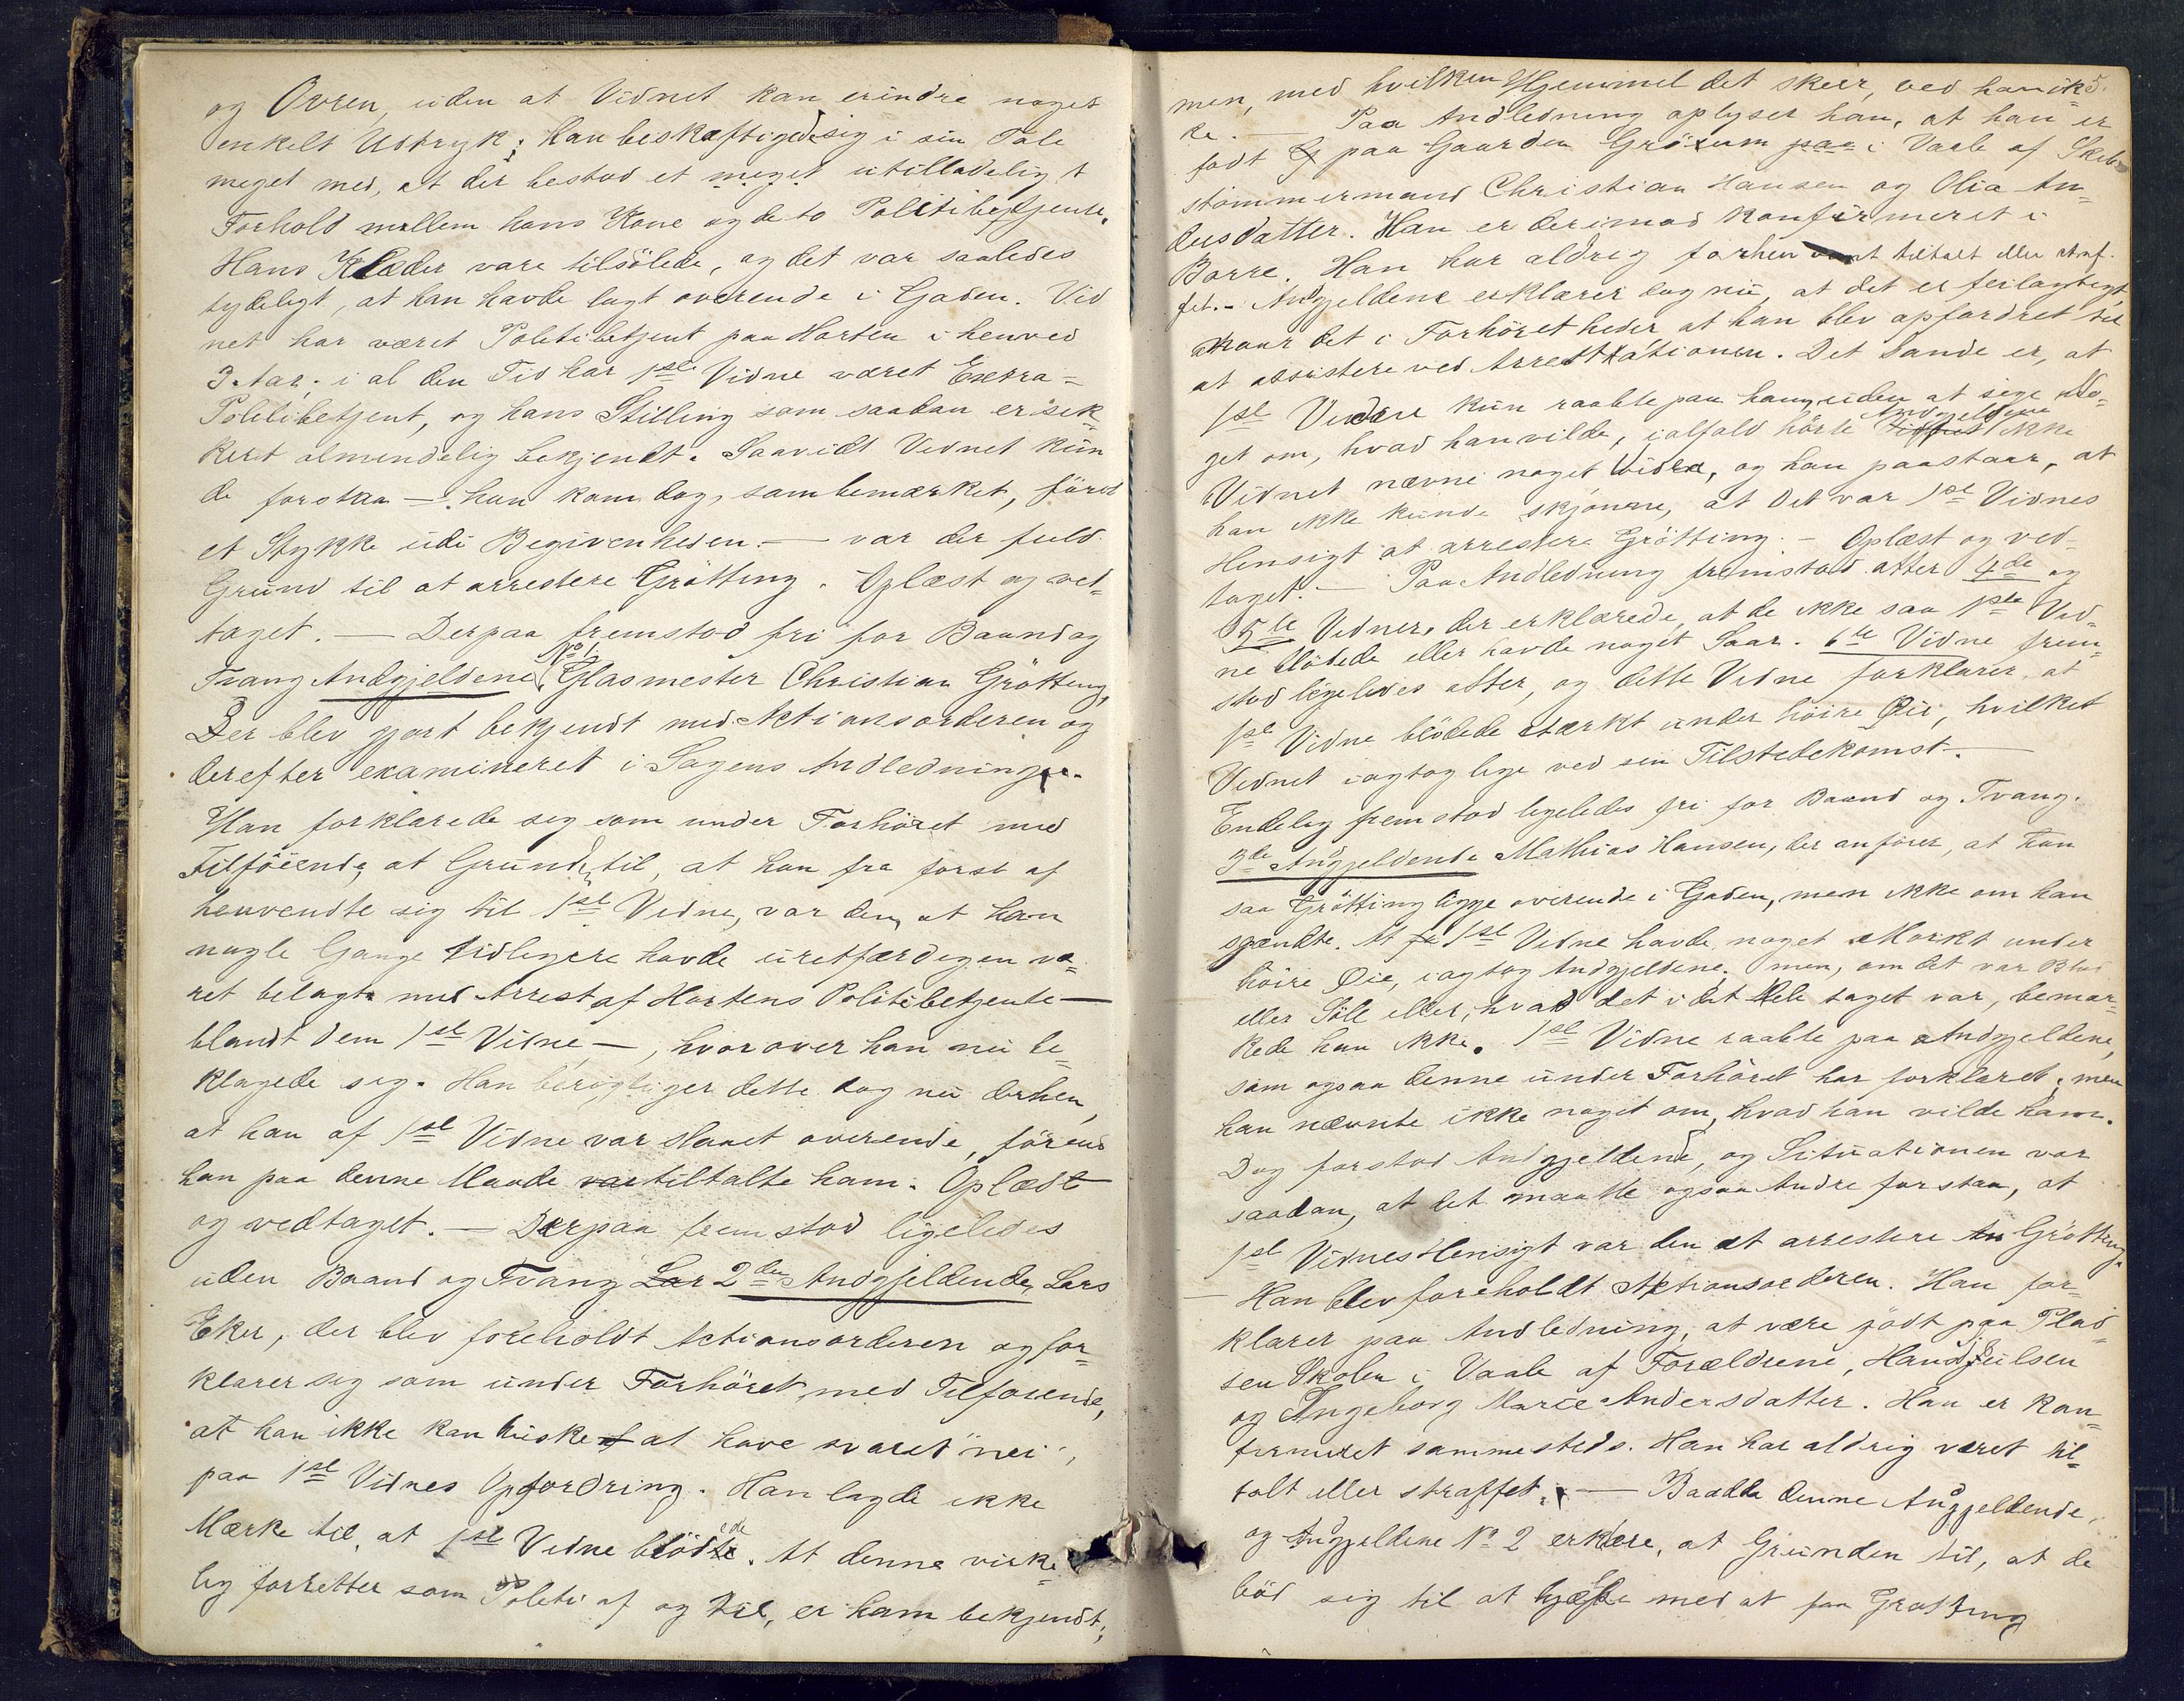 og Ovren, uden at Vidnet kan erindre noget
enkelt Udtryk; Han beskæftigede sig i sin Tale
meget med, at der bestod et meget utilladeligt
Forhold mellem hans Kone og de to Politibetjente.
Hans Klæder vare tilsölede, og det var saaledes
tydeligt, at han havde lagt overende i Gaden. Vid
net har været Politibetjent paa Horten i henved
3 Aar. i al den Tid har 1ste Vidne været Extra-
Politibetjent, og hans Stilling som saadan er sik-
kert almindelig bekjendt. Saavidt Vidnet kun
de forstaa — han kom dog, som bemærket, först
et Stykke udi Begivenheden — var der fuld
Grund til at arrestere Grötting. Oplæst og ved-
taget. — Derpaa fremstod fri for Baand og
Tvang Andgjeldene No 1 Glasmester Christian Grötting,
Der blev gjort bekjendt med Actionsorderen og
derefter examineret i Sagens Anledning.
Han forklarede sig som under Forhöret med
Tilföiende, at Grunden til, at han fra först af
henvendte sig til 1ste Vidne, var den, at han
nogle Gange tidligere havde uretfærdigen væ-
ret belagt med Arrest af Hortens Politibetjente —
blandt dem 1ste Vidne —, hvorover han nu be-
klagede sig. Han berigtiger dette dog nu derhen,
at han af 1ste Vidne var slaaet overende, förend
han paa denne Maade var tiltalte ham. Oplæst
og vedtaget. — Derpaa fremstod ligeledes
uden Baand og Tvang Lar 2den Andgjeldende, Lars
Eker, der blev foreholdt Actionsorderen og for-
klarer sig som under Forhöret, med Tilföiende,
at han ikke kan huske af at have svaret "nei",
paa 1ste Vidnes Opfordring. Han lagde ikke
Mærke til, at 1ste Vidne blödede. At denne virke-
lig forretter som Politi af og til, er ham bekjendt;
men, med hvilken Hjemmel det skeer, ved han ik-
ke. — Paa Anledning oplyser han, at han er
födt paa Gaarden Grösum paa i Vaale af Skibs
stömmermand Christian Hansen og Olia An-
dersdatter. Han er derimod konfirmeret i
Borre. Han har aldrig forhen været tiltalt eller straf-
fet. - Andgjeldene erklærer dog nu, at det er feilagtigt,
naar det i Forhöret heder at han blev opfordret til
at assistere ved Arrestationen. Det Sande er, at
1ste Vidne kun raabte paa ham, uden at sige No-
get om, hvad han vilde, ialfald hörte Vidnet Andgjeldene ikke
Vidnet nævne noget videre, og han paastaar, at
han ikke kunde skjönne, at det var 1ste Vidnes
Hensigt at arrestere Grötting. - Oplæst og ved-
taget. — Paa Anledning fremstod atter 4de og
5te Vidner, der erklærede, at de ikke saa 1ste Vid-
ne blödede eller havde noget Saar. 6te Vidne frem-
stod ligeledes atter, og dette Vidne forklarer, at
1ste Vidne blödede stærkt under höire Öie, hvilket
Vidnet iagtog lige ved sin Tilstedekomst. —
Endelig fremstod ligeledes fri for Baand og Tvang.
3de Andgjeldende Mathias Hansen, der anförer, at han
saa Grötting ligge overende i Gaden, men ikke om han
spændte. At 1ste Vidne havde noget Mörkt under
höire Öie, iagtog Andgjeldene; men, om det var Blod
eller Söle eller, hvad det i det Hele taget var, bemær-
kede han ikke. 1ste Vidne raabte paa Andgjeldene,
som ogsaa denne under Forhöret har forklaret; men
han nævnte ikke noget om, hvad han vilde ham.
Dog forstod Andgjeldene, og Situationen var
saadan, at det maatte ogsaa Andre forstaa, at
1ste Vidnes Hensigt var den at arrestere An Grötting.
— Han blev foreholdt Actionsorderen. Han for-
klarer paa Anledning, at være födt paa Plad-
sen Skolen i Vaale af Forældrene, Hans Juulsen
og Ingeborg Marie Andersdatter. Han er kon-
firmeret sammesteds. Han har aldrig været til-
talt eller straffet. — Baade denne Andgjeldende,
og Andgjeldene No 2 erklære, at Grunden til, at de
böd sig til at hjælpe med at faa Grötting